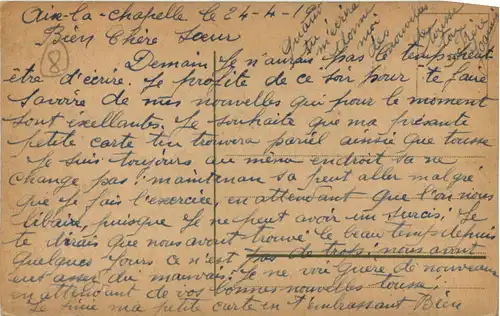 Aix-la-chapelle le 24-4-19
Bien Chère Sœur
Quand tu
m'écrira
donne
moi
des
nouvelles
Demain Je n'aurais pas le temp
être d'écrire. Je profite de ce soir pour te faire
savoire de mes nouvelles qui pour le moment
sont exellantes. Je souhaite que ma présante
petite carte tu trouvera pariél ainsie que tousse
Je suis toujours au mème endroit sa ne
change pas! maintenan sa peut aller malgré
que Je fais l'exercice, en attendant que l'on nous
libaire, puisque Je ne peut avoir un sursis! Je
te dirais que nous avont trouvé le beau temp depuis
quelques Jours ce n'est pas de trops! nous avont
eut assez du mauvais! Je ne voi guère de nouveau
en attendent de vos bonnes nouvelles tousse!
Je fini ma petite carte en t'embrassant Bien
8